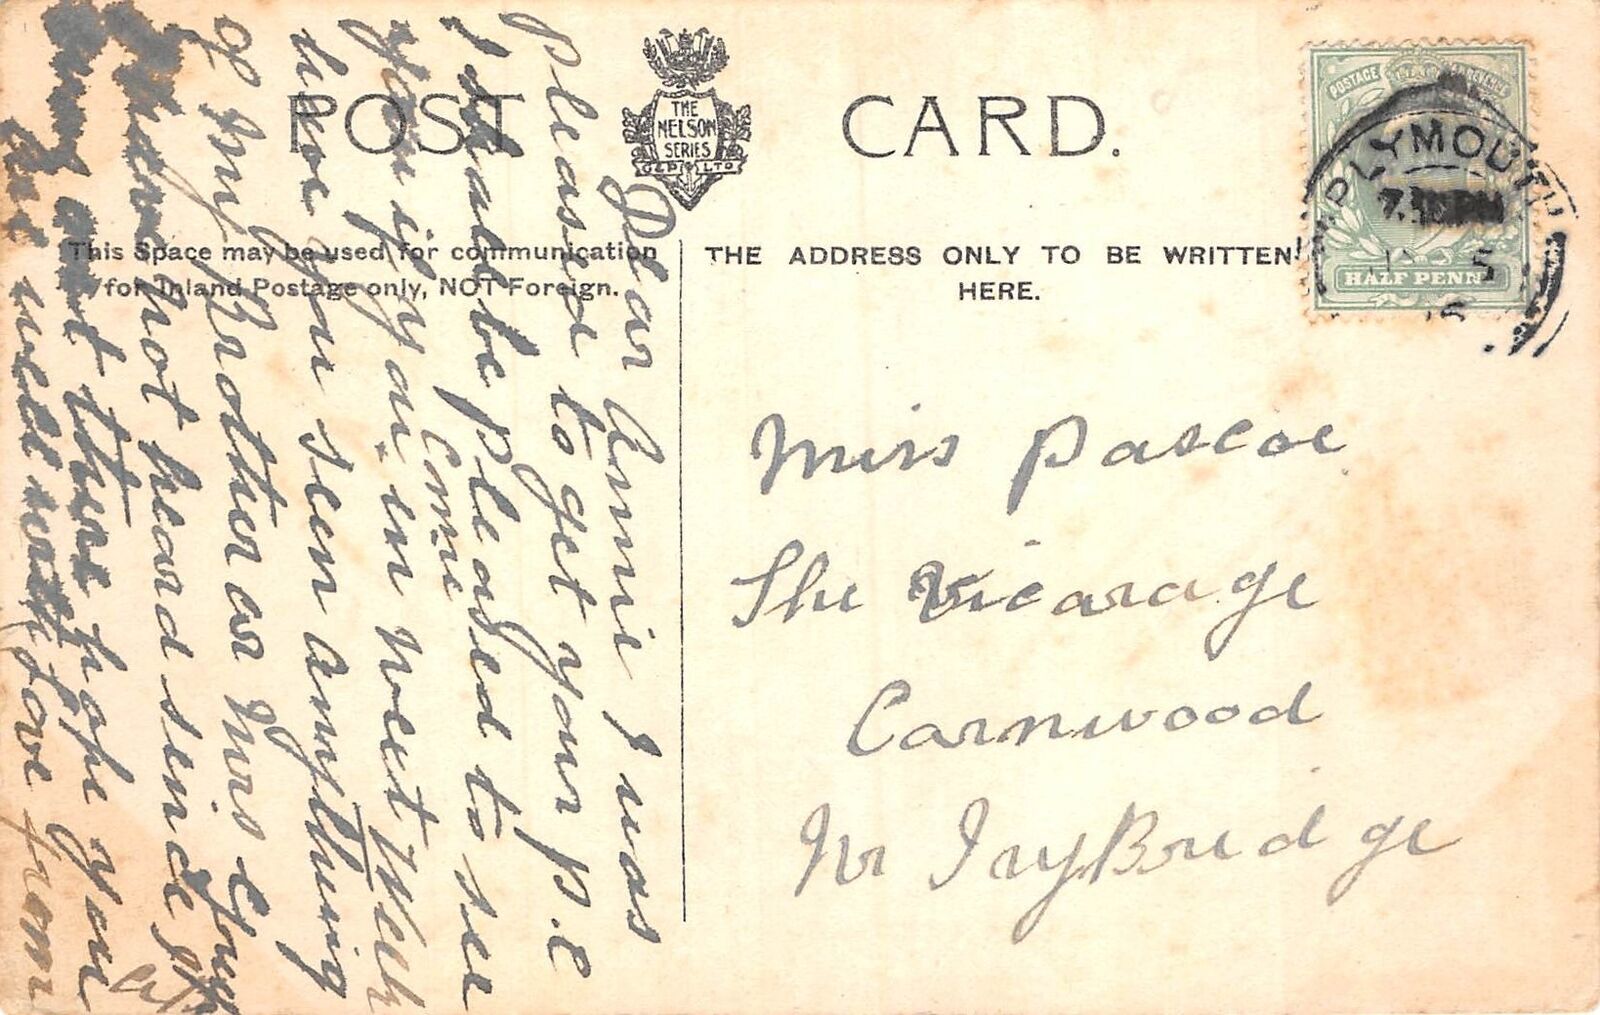 POST CARD.
THE
NELSON
SERIES
G.D & D. LTD
This Space may be used for communication
for Inland Postage only, NOT Foreign.
THE ADDRESS ONLY TO BE WRITTEN
HERE.
POSTAGE REVENUE
HALF PENNY
PLYMOUTH
7.30 PM
5
Dear Annie I was
please to get your P.C
I shall be pleased to see
you if you come in next Week
have you seen anything
of my Brother or Mrs
have not heard since
there hope you
are well with love from
Miss Pascoe
The Vicarage
Cornwood
Nr IvyBridge